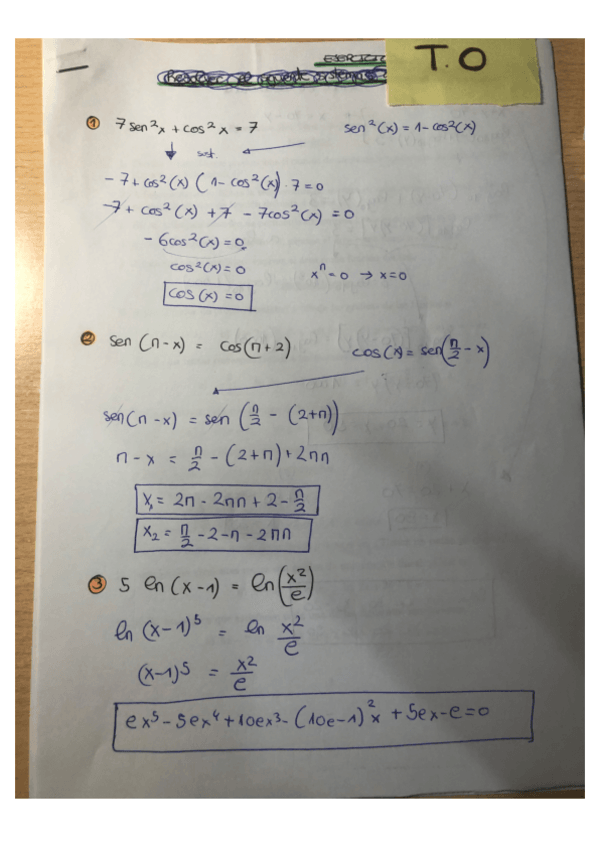 EJERCICIO
T.O
① 7 sen²x + cos²x = 7 sen²(x) = 1 - cos²(x)
sust.
- 7 + cos²(x) (1 - cos²(x)) · 7 = 0
- 7 + cos²(x) + 7 - 7cos²(x) = 0
- 6cos²(x) = 0
cos²(x) = 0 xⁿ = 0 → x = 0
cos (x) = 0
② sen (π - x) = cos(π + 2) cos(x) = sen(π/2 - x)
sen(π - x) = sen (π/2 - (2+π))
π - x = π/2 - (2+π) + 2πn
x₁ = 2π - 2πn + 2 - π/2
x₂ = π/2 - 2 - π - 2πn
③ 5 ln (x-1) = ln(x²/e)
ln (x-1)⁵ = ln x²/e
(x-1)⁵ = x²/e
ex⁵ - 5ex⁴ + 10ex³ - (10e-1)²x + 5ex - e = 0